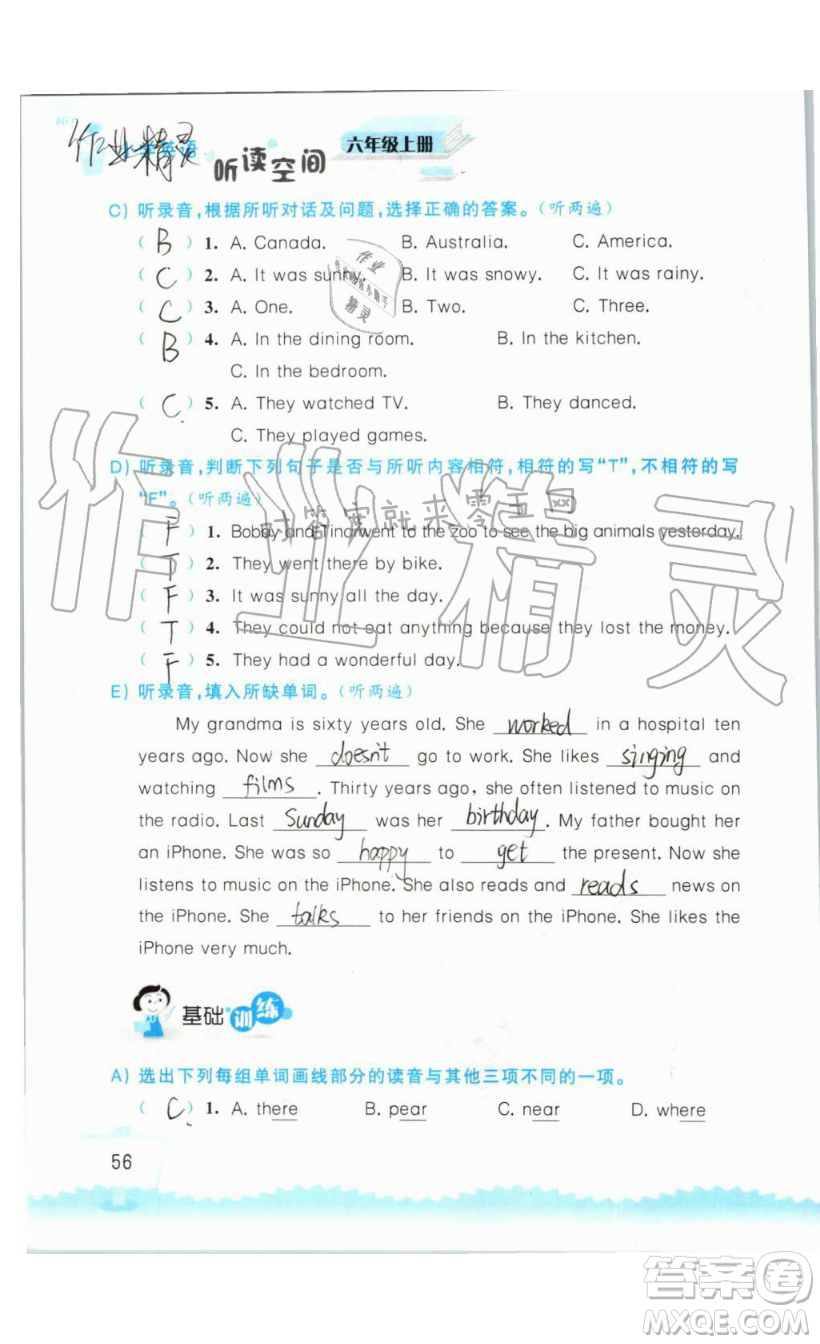 作业精灵
听读空间
六年级上册
C) 听录音,根据所听对话及问题,选择正确的答案。(听两遍)
( B ) 1. A. Canada. B. Australia. C. America.
( C ) 2. A. It was sunny. B. It was snowy. C. It was rainy.
( C ) 3. A. One. B. Two. C. Three.
( B ) 4. A. In the dining room. B. In the kitchen.
C. In the bedroom.
( C ) 5. A. They watched TV. B. They danced.
C. They played games.
D) 听录音,判断下列句子是否与所听内容相符,相符的写“T”,不相符的写
“F”。(听两遍)
对答案就来零五网
( F ) 1. Bobby and Tina went to the zoo to see the big animals yesterday.
( T ) 2. They went there by bike.
( F ) 3. It was sunny all the day.
( T ) 4. They could not eat anything because they lost the money.
( F ) 5. They had a wonderful day.
作业精灵
E) 听录音,填入所缺单词。(听两遍)
My grandma is sixty years old. She worked in a hospital ten
years ago. Now she doesn't go to work. She likes singing and
watching films. Thirty years ago, she often listened to music on
the radio. Last Sunday was her birthday. My father bought her
an iPhone. She was so happy to get the present. Now she
listens to music on the iPhone. She also reads and reads news on
the iPhone. She talks to her friends on the iPhone. She likes the
iPhone very much.
基础训练
A) 选出下列每组单词画线部分的读音与其他三项不同的一项。
( C ) 1. A. there B. pear C. near D. where
56
答案卷
MXQE.COM